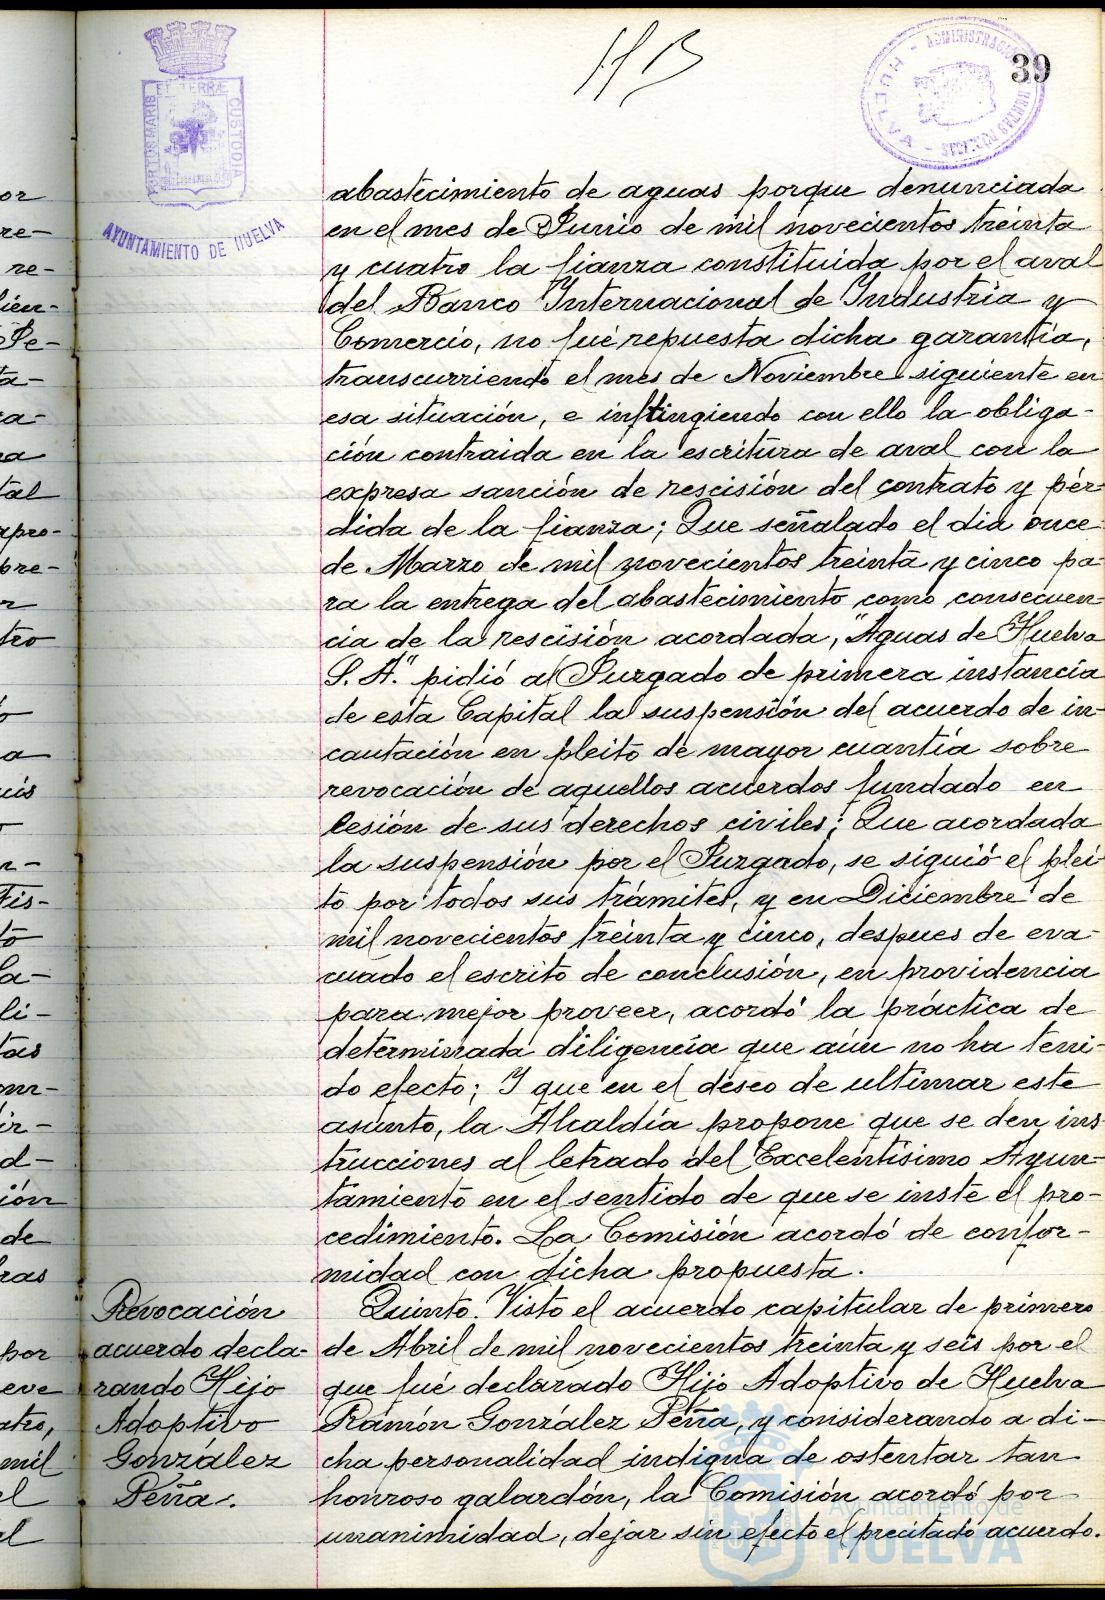 39
PORTUS MARIS ET TERRÆ CUSTODIA
AYUNTAMIENTO DE HUELVA
abastecimiento de aguas porque denunciada
en el mes de Junio de mil novecientos treinta
y cuatro la fianza constituida por el aval
del Banco Internacional de Industria y
Comercio, no fué repuesta dicha garantía,
transcurriendo el mes de Noviembre siguiente en
esa situación, e infringiendo con ello la obliga-
ción contraida en la escritura de aval con la
expresa sanción de rescisión del contrato y pér-
dida de la fianza; Que señalado el dia once
de Marzo de mil novecientos treinta y cinco pa-
ra la entrega del abastecimiento como consecuen-
cia de la rescisión acordada, "Aguas de Huelva
S. A." pidió al Juzgado de primera instancia
de esta Capital la suspensión del acuerdo de in-
cautación en pleito de mayor cuantía sobre
revocación de aquellos acuerdos fundado en
lesión de sus derechos civiles; Que acordada
la suspensión por el Juzgado, se siguió el plei-
to por todos sus trámites, y en Diciembre de
mil novecientos treinta y cinco, despues de eva-
cuado el escrito de conclusión, en providencia
para mejor proveer, acordó la práctica de
determinada diligencia que aún no ha teni-
do efecto; Y que en el deseo de ultimar este
asunto, la Alcaldía propone que se den ins-
trucciones al letrado del Excelentísimo Ayun-
tamiento en el sentido de que se inste el pro-
cedimiento. La Comisión acordó de confor-
midad con dicha propuesta.
Revocación
acuerdo decla-
rando Hijo
Adoptivo
González
Peña.
Quinto. Visto el acuerdo capitular de primero
de Abril de mil novecientos treinta y seis por el
que fué declarado Hijo Adoptivo de Huelva
Ramón González Peña, y considerando a di-
cha personalidad indigna de ostentar tan
honroso galardón, la Comisión acordó por
unanimidad, dejar sin efecto el precitado acuerdo.
Ayuntamiento de
HUELVA